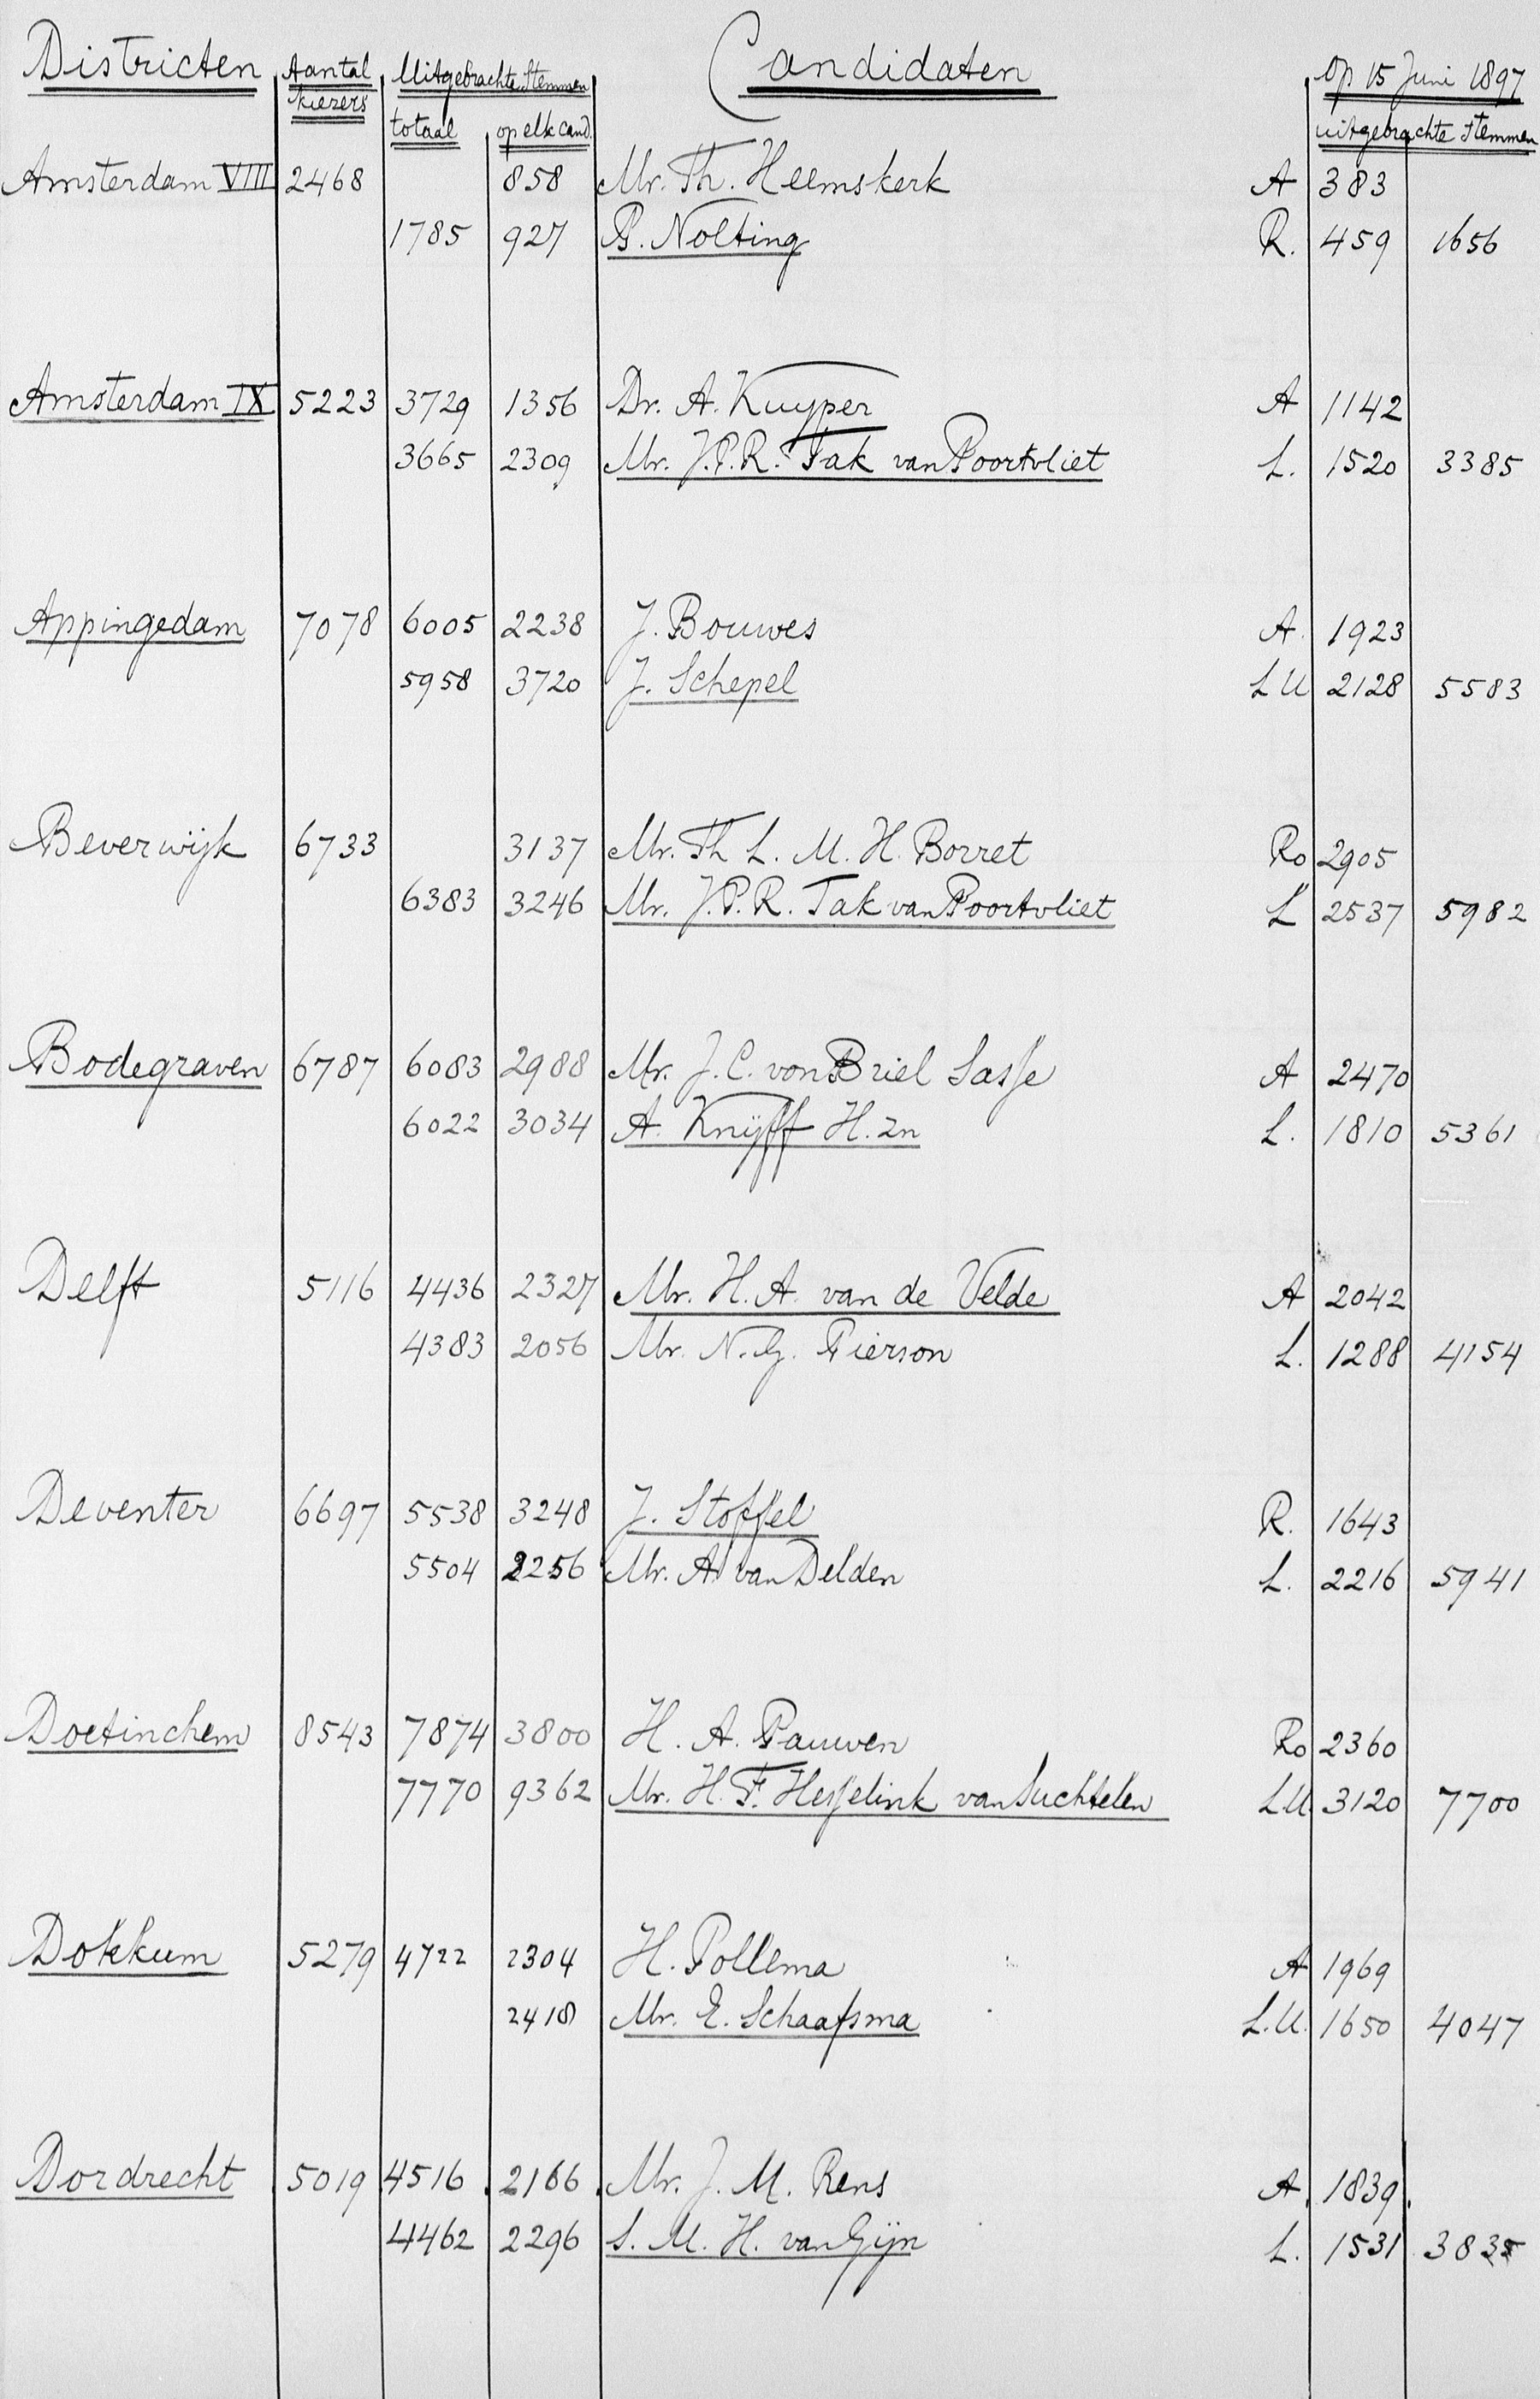 Districten Aantal kiezers Uitgebrachte Stemmen Candidaten op 15 Juni 1897
totaal op elk cand. uitgebrachte stemmen
Amsterdam VIII 2468 858 Mr. Th. Heemskerk A 383
1785 927 P. Nolting R. 459 1656
Amsterdam IX 5223 3729 1356 Dr. A. Kuyper A 1142
3665 2309 Mr. J.P.R. Tak van Poortvliet L. 1520 3385
Appingedam 7078 6005 2238 J. Bouwes A. 1923
5958 3720 J. Schepel LU 2128 5583
Beverwijk 6733 3137 Mr. Th L. M. H. Borret Ro 2905
6383 3246 Mr. J.P.R. Tak van Poortvliet L 2537 5982
Bodegraven 6787 6083 2988 Mr. J. C. von Briel Sasse A 2470
6022 3034 A. Knijff H.zn L. 1810 5361
Delft 5116 4436 2327 Mr. H. A. van de Velde A 2042
4383 2056 Mr. N. G. Pierson L. 1288 4154
Deventer 6697 5538 3248 J. Stoffel R. 1643
5504 2256 Mr. A van Delden L. 2216 5941
Doetinchem 8543 7874 3800 H. A. Pauwen Ro 2360
7770 9362 Mr. H. F. Hesselink van Suchtelen LU. 3120 7700
Dokkum 5279 4722 2304 H. Pollema A 1969
2418 Mr. E. Schaafsma L.U. 1650 4047
Dordrecht 5019 4516 2166 Mr. J. M. Rens A. 1839
4462 2296 S. M. H. van Gijn L. 1531 3835